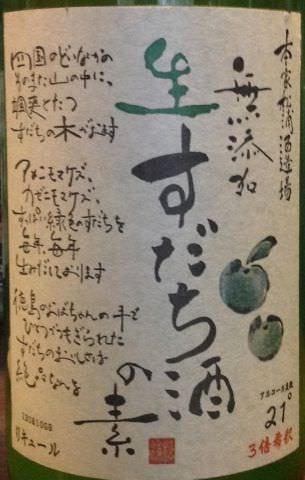 本家松浦酒造場
無添加
生すだち酒の素
アルコール度数
21°
3倍希釈
四国のどいなかの
そのまた山の中に、
楓爽とたつ
すだちの木があります
アメニモマケズ、
カゼニモマケズ、
すっぱい緑色のすだちを
毎年、毎年
生みだしております
徳島のおばちゃんの手で
ひとつひとつもぎとられた
すだちのおいしさは
絶品なのよ
1208106B
リキュール